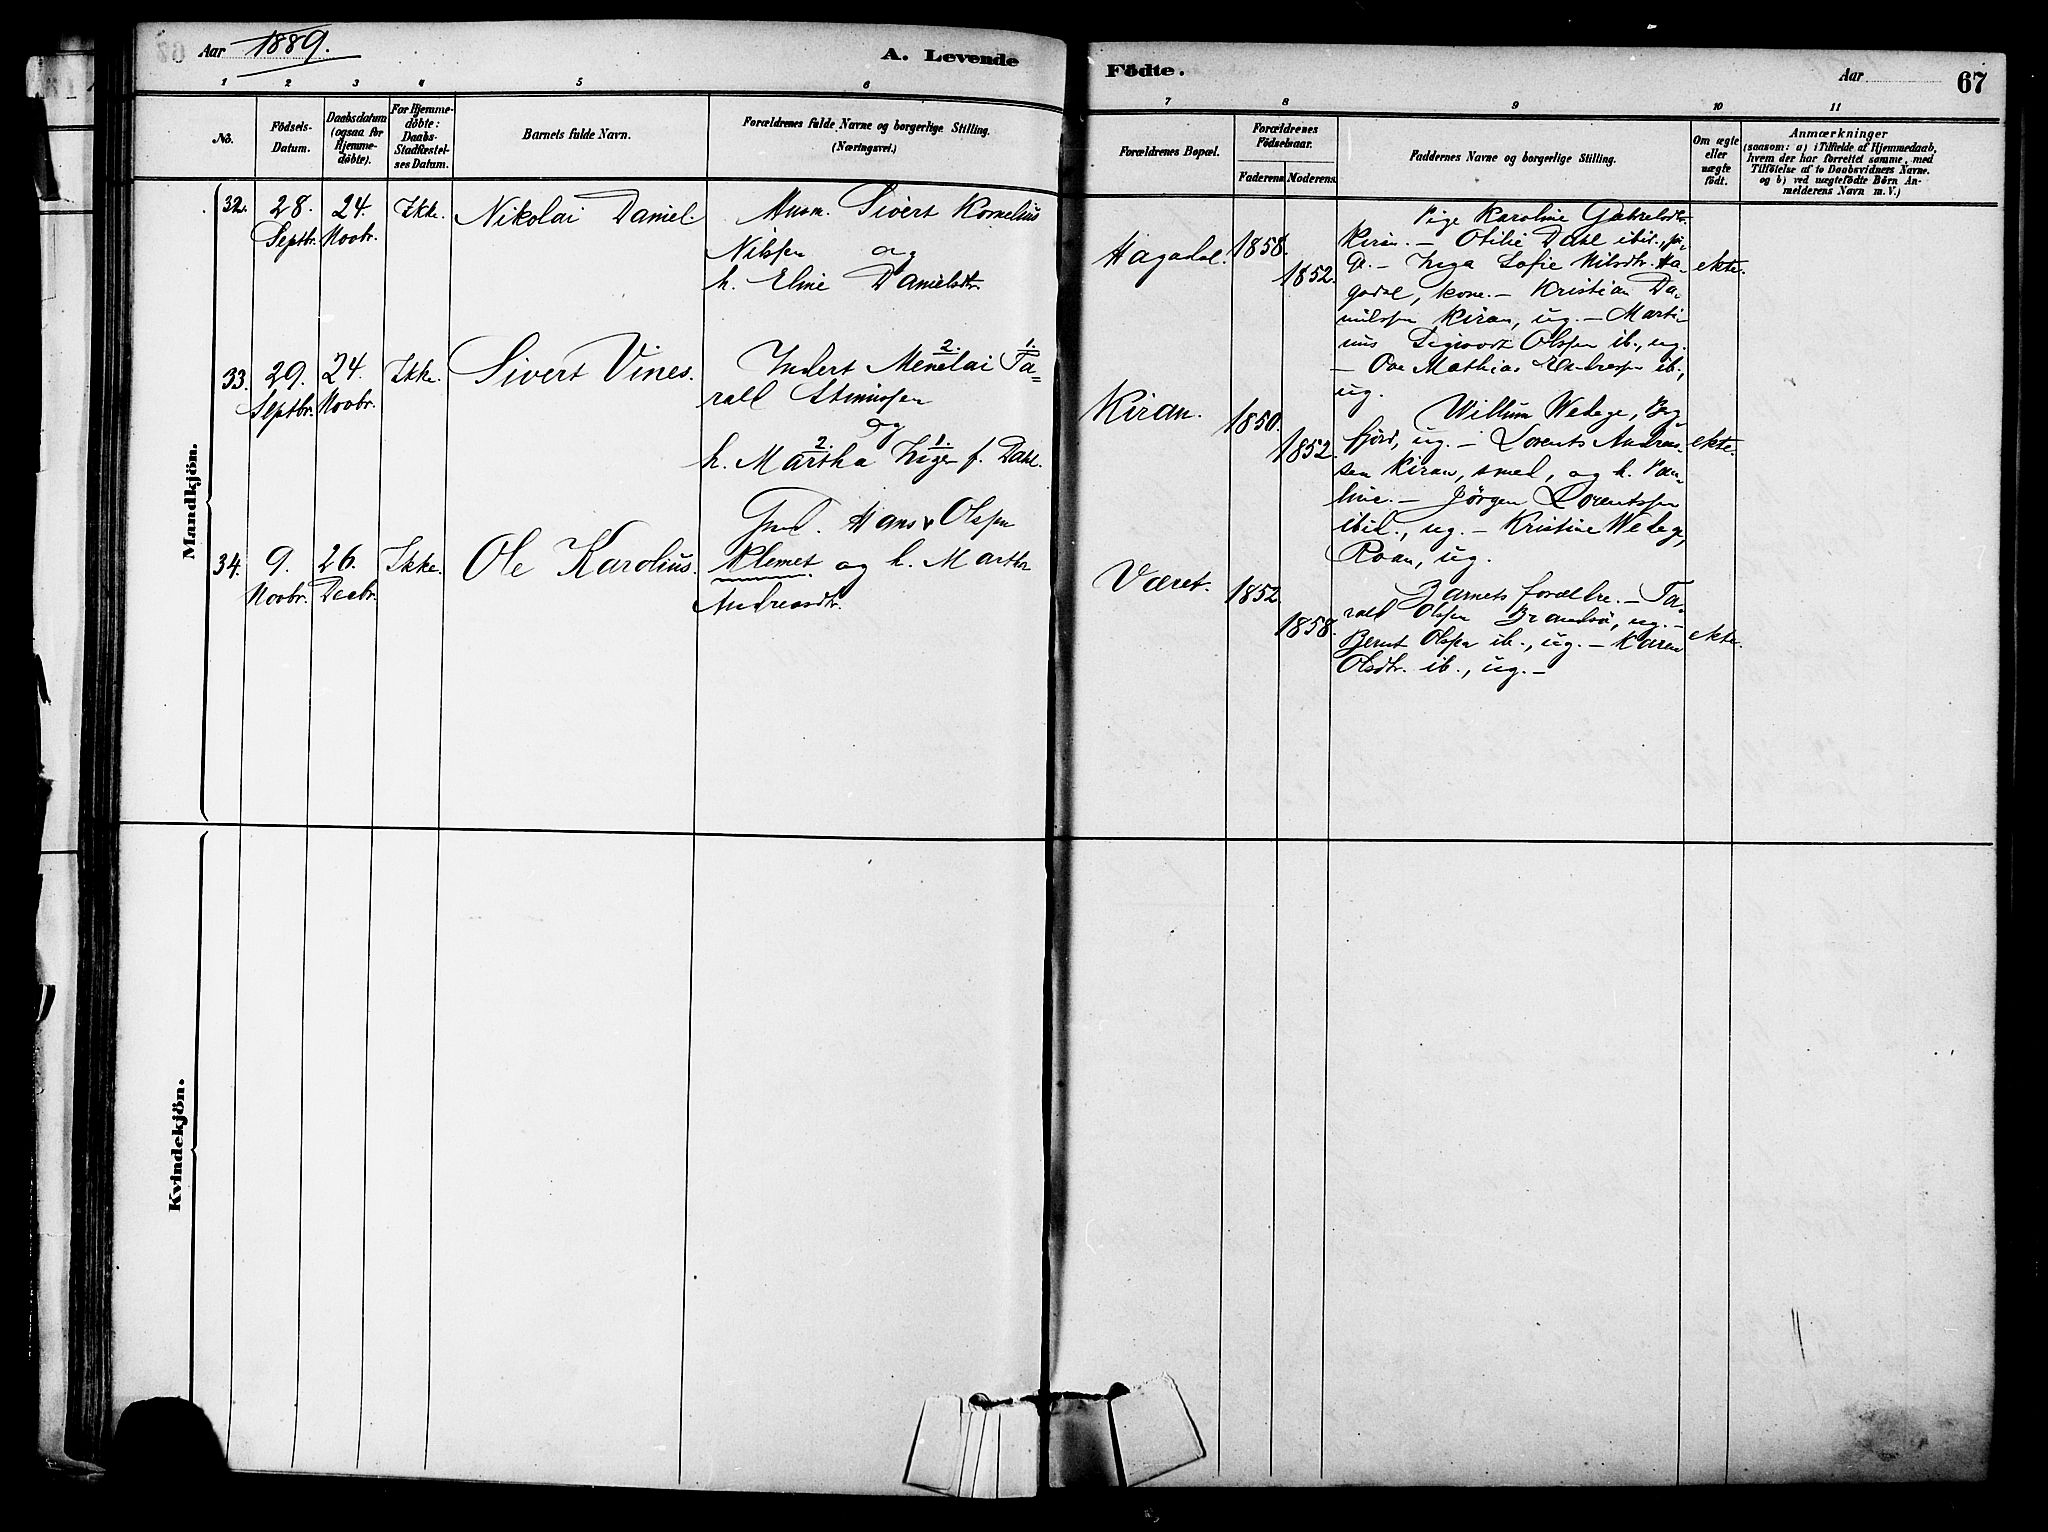 Aar 1889.
A. Levende
Födte.
Aar
67
1
2
3
4
5
6
7
8
9
10
11
No.
Födsels-
Datum.
Daabsdatum
(ogsaa for
Hjemme-
döbte).
For Hjemme-
döbte:
Daabs-
Stadfæstel-
ses Datum.
Barnets fulde Navn.
Forældrenes fulde Navne og borgerlige Stilling.
(Næringsvei.)
Forældrenes Bopæl.
Forældrenes
Födselsaar.
Faderens
Moderens.
Faddernes Navne og borgerlige Stilling.
Om ægte
eller
uægte
födt.
Anmærkninger
(saasom: a) i Tilfælde af Hjemmedaab,
hvem der har forrettet samme, med
Tilföielse af to Daabsvidners Navne.
og b) ved uægtefödte Börn An-
melderens Navn m. V.)
Mandkjön.
32.
28.
Septbr.
24.
Novbr.
Ikke.
Nikolai Daniel.
Husm. Sivert Kornelius
Nilssen og
h. Eline Danielsdtr.
Hagadal.
1858.
1852.
Pige Karoline Gabrielsdtr.
Kiran. – Otilie Dahl ibid., pi-
ge. – Inga Sofie Nilsdtr. Ha-
gadal, kone. – Kristian Da-
nielssen Kiran, ug. – Marti-
nus Olssen ib., ug.
– Ove Mathias Andressen ib.,
ug.
ekte.
33.
29.
Septbr.
24.
Novbr.
Ikke.
Sivert Vines.
Inderst Menelai 2. Ta= 1.
rald
og
h. Martha 2. Inger 1. f. Dahl.
Kiran.
1850.
1852.
Willum Wedege, Ber
fjord, ug. – Lorents Andrea-
sen Kiran, smed, og h. Pau-
line. – Jörgen Lorentssen
ibid., ug. – Kristine Wedege,
Roan, ug.
ekte.
34.
9.
Novbr.
26.
Decbr.
Ikke.
Ole Karolius.
Grd. Hans Olssen
Klemet og h. Martha
Andreasdtr.
Været.
1852.
1858.
Barnets forældre. – Ta-
rald Olssen Brandsö, ug. –
Bernt Olssen ib., ug. – Karen
Olsdtr. ib., ug. –
ekte.
Kvindekjön.